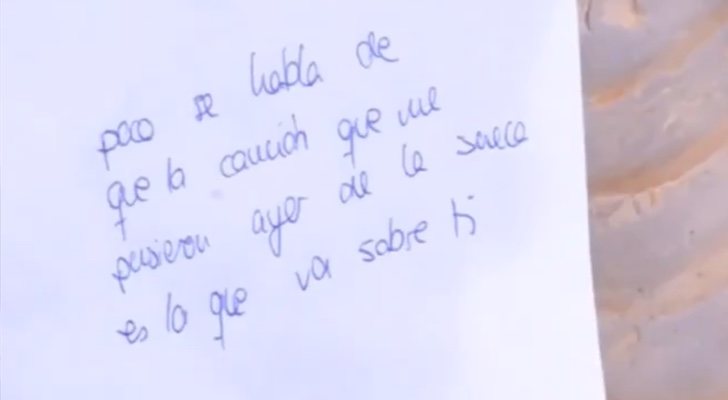 poco se habla de
que la canción que me
pusieron ayer de la sueca
es lo que va sobre ti